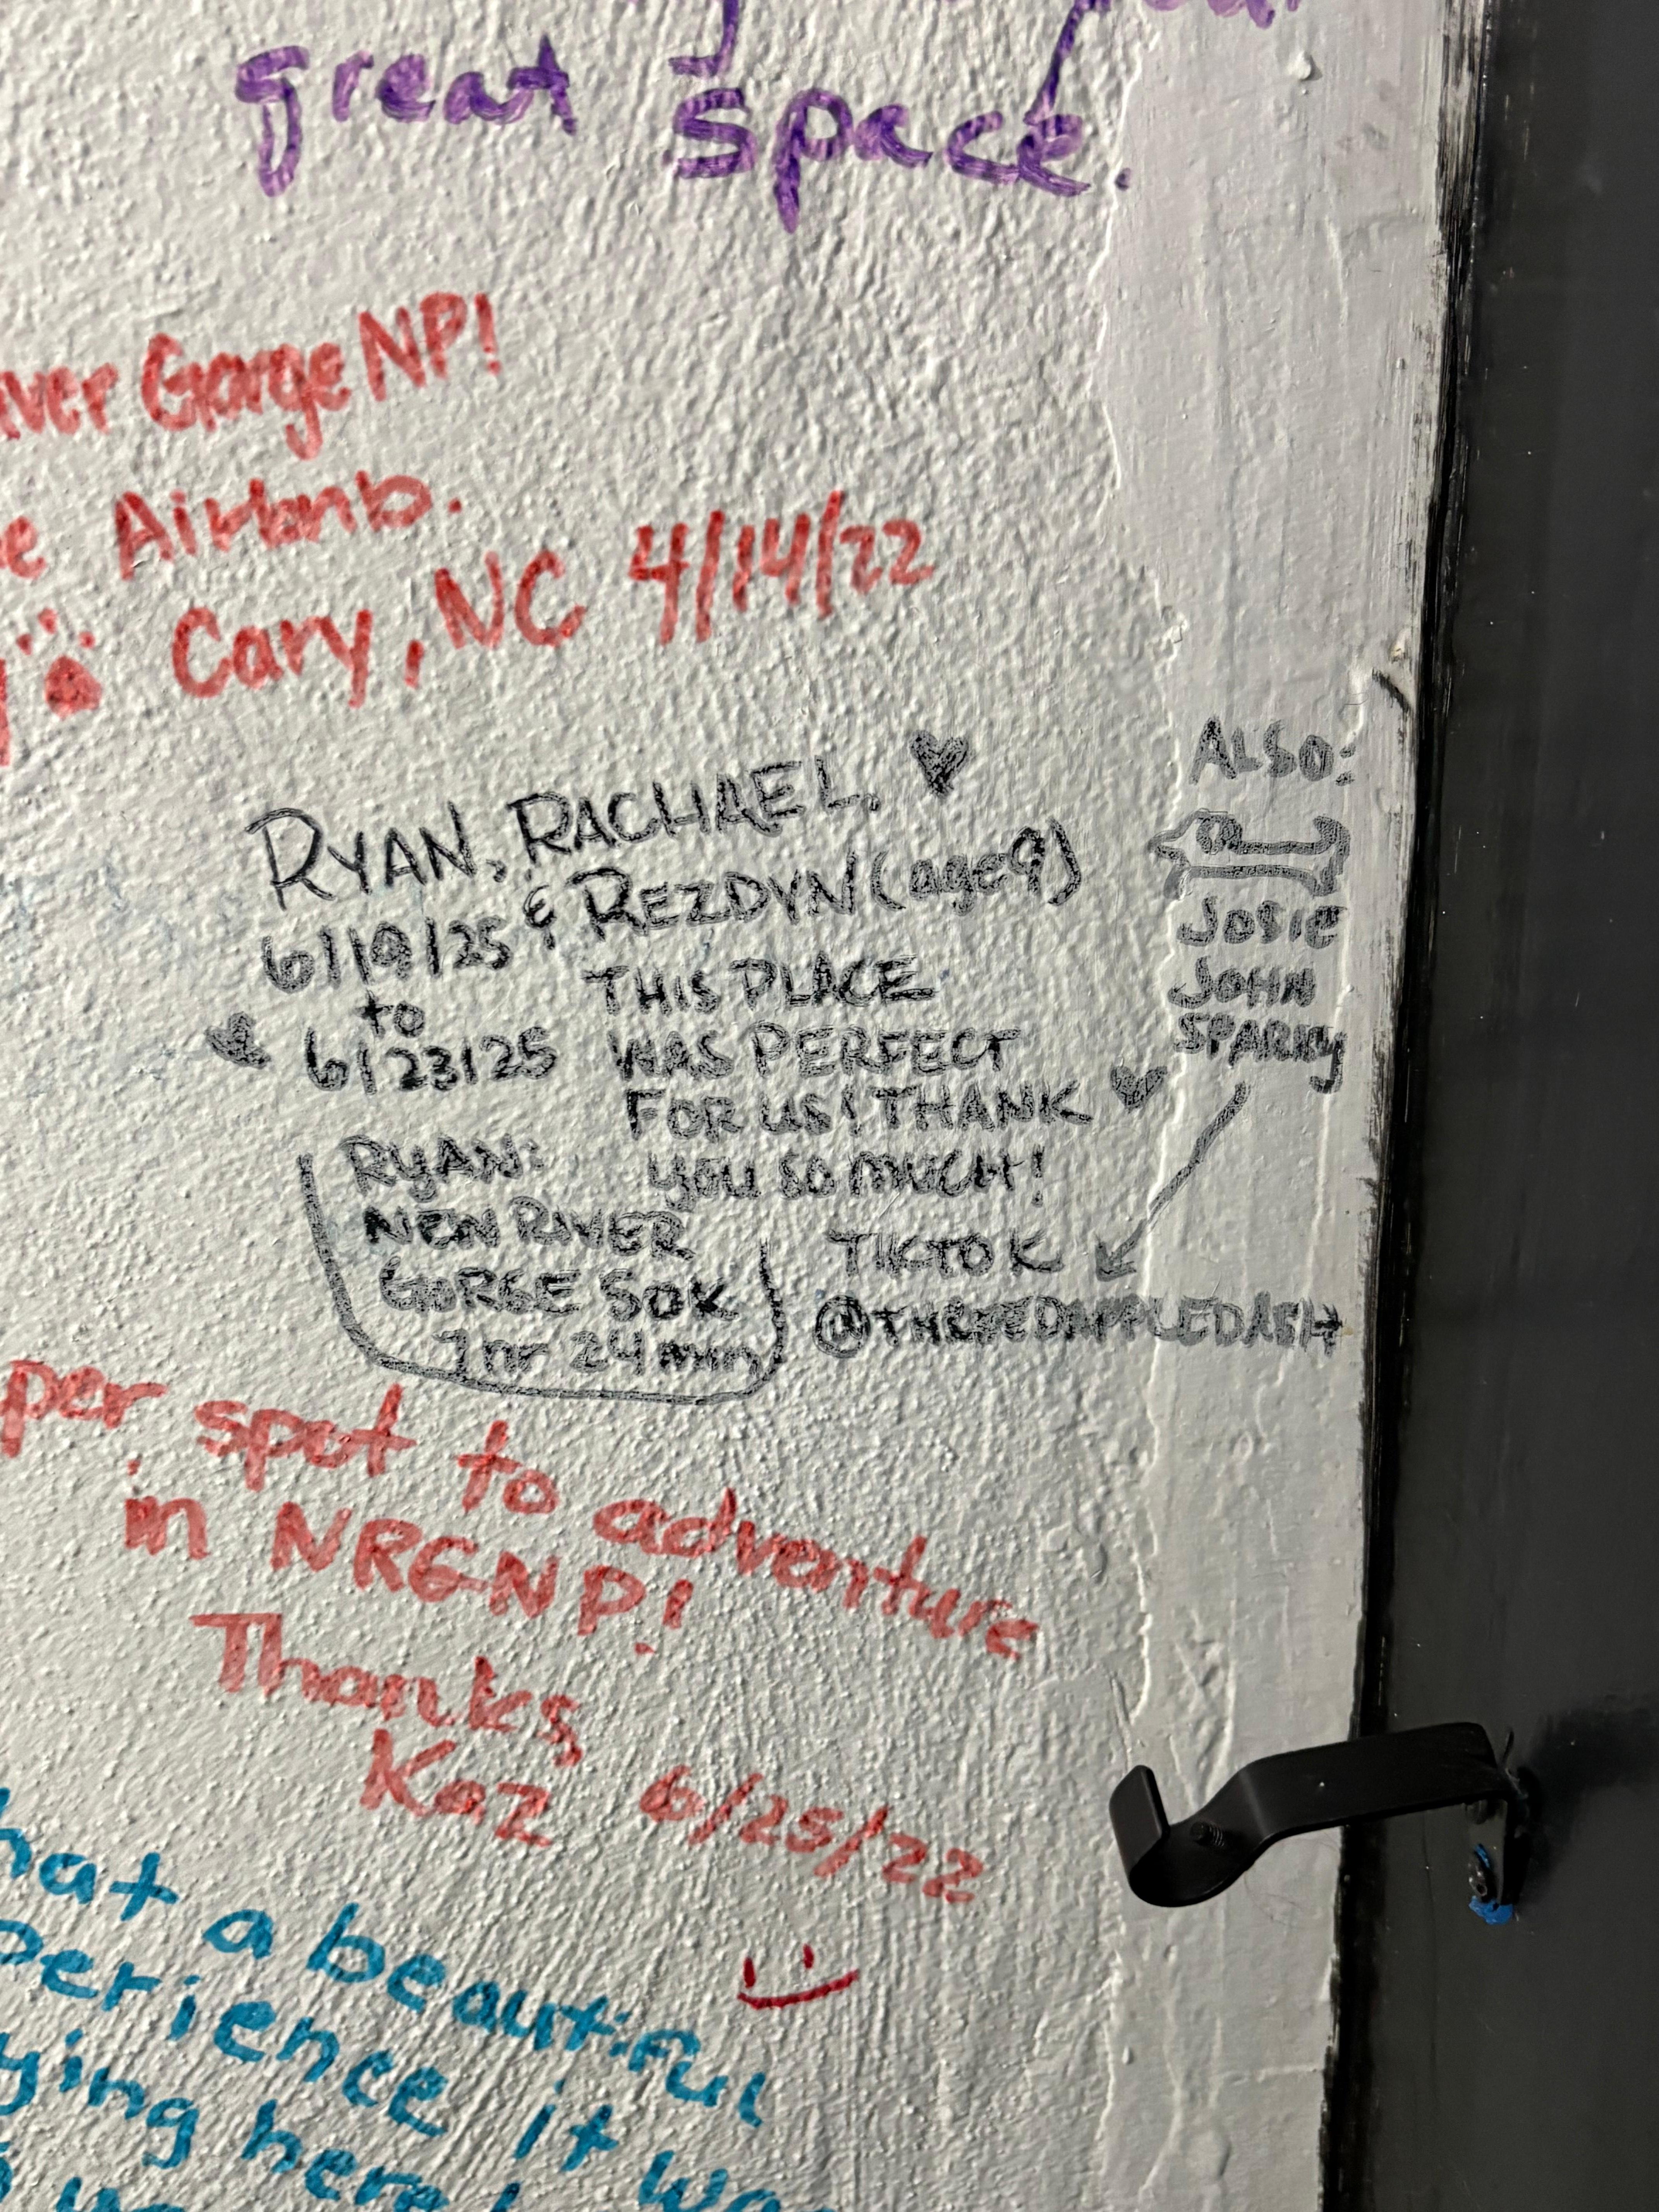 great space.
ver Gorge NP!
e Airbnb.
Cary, NC 4/14/22
RYAN, RACHAEL,
& REZDYN (age 9)
6/19/25
to
6/23/25
THIS PLACE
WAS PERFECT
FOR US! THANK
YOU SO MUCH!
RYAN:
NEW RIVER
GORGE 50K
7hr 24min
ALSO:
JOSIE
JOHN
SPARKY
TIKTOK
per spot to adventure
in NRGNP!
Thanks
Kaz 6/25/22
hat a beautiful
perience it wa
ying here